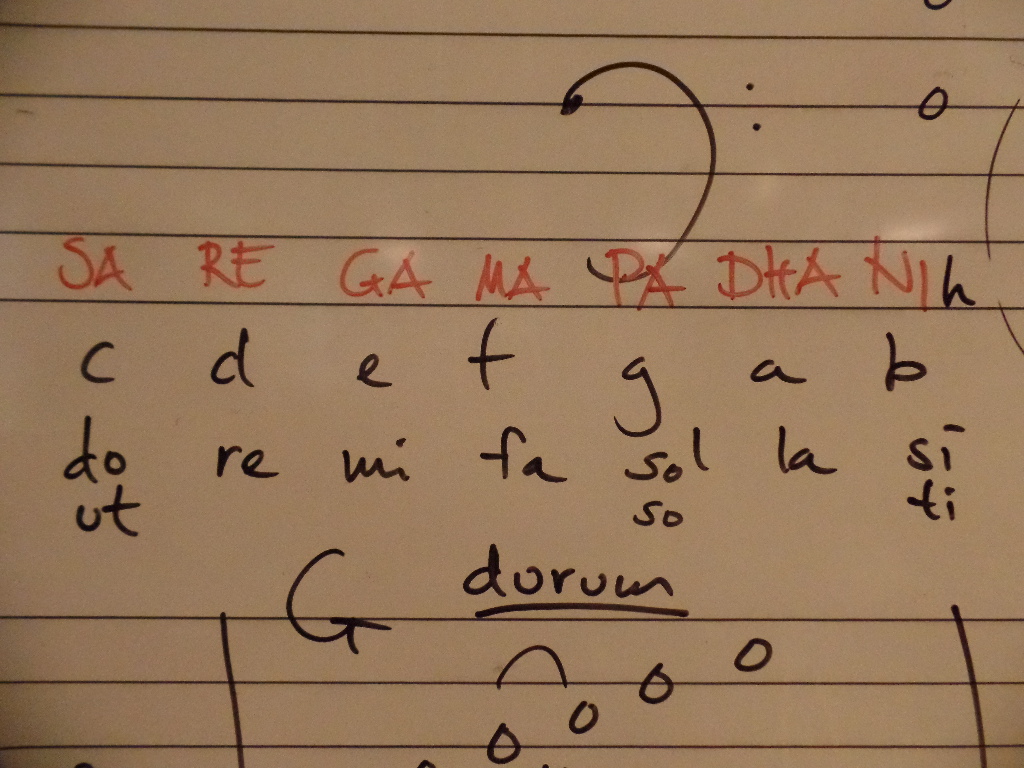 SA RE GA MA PA DHA NI h
c d e f g a b
do re mi fa sol la si
ut so ti
durum